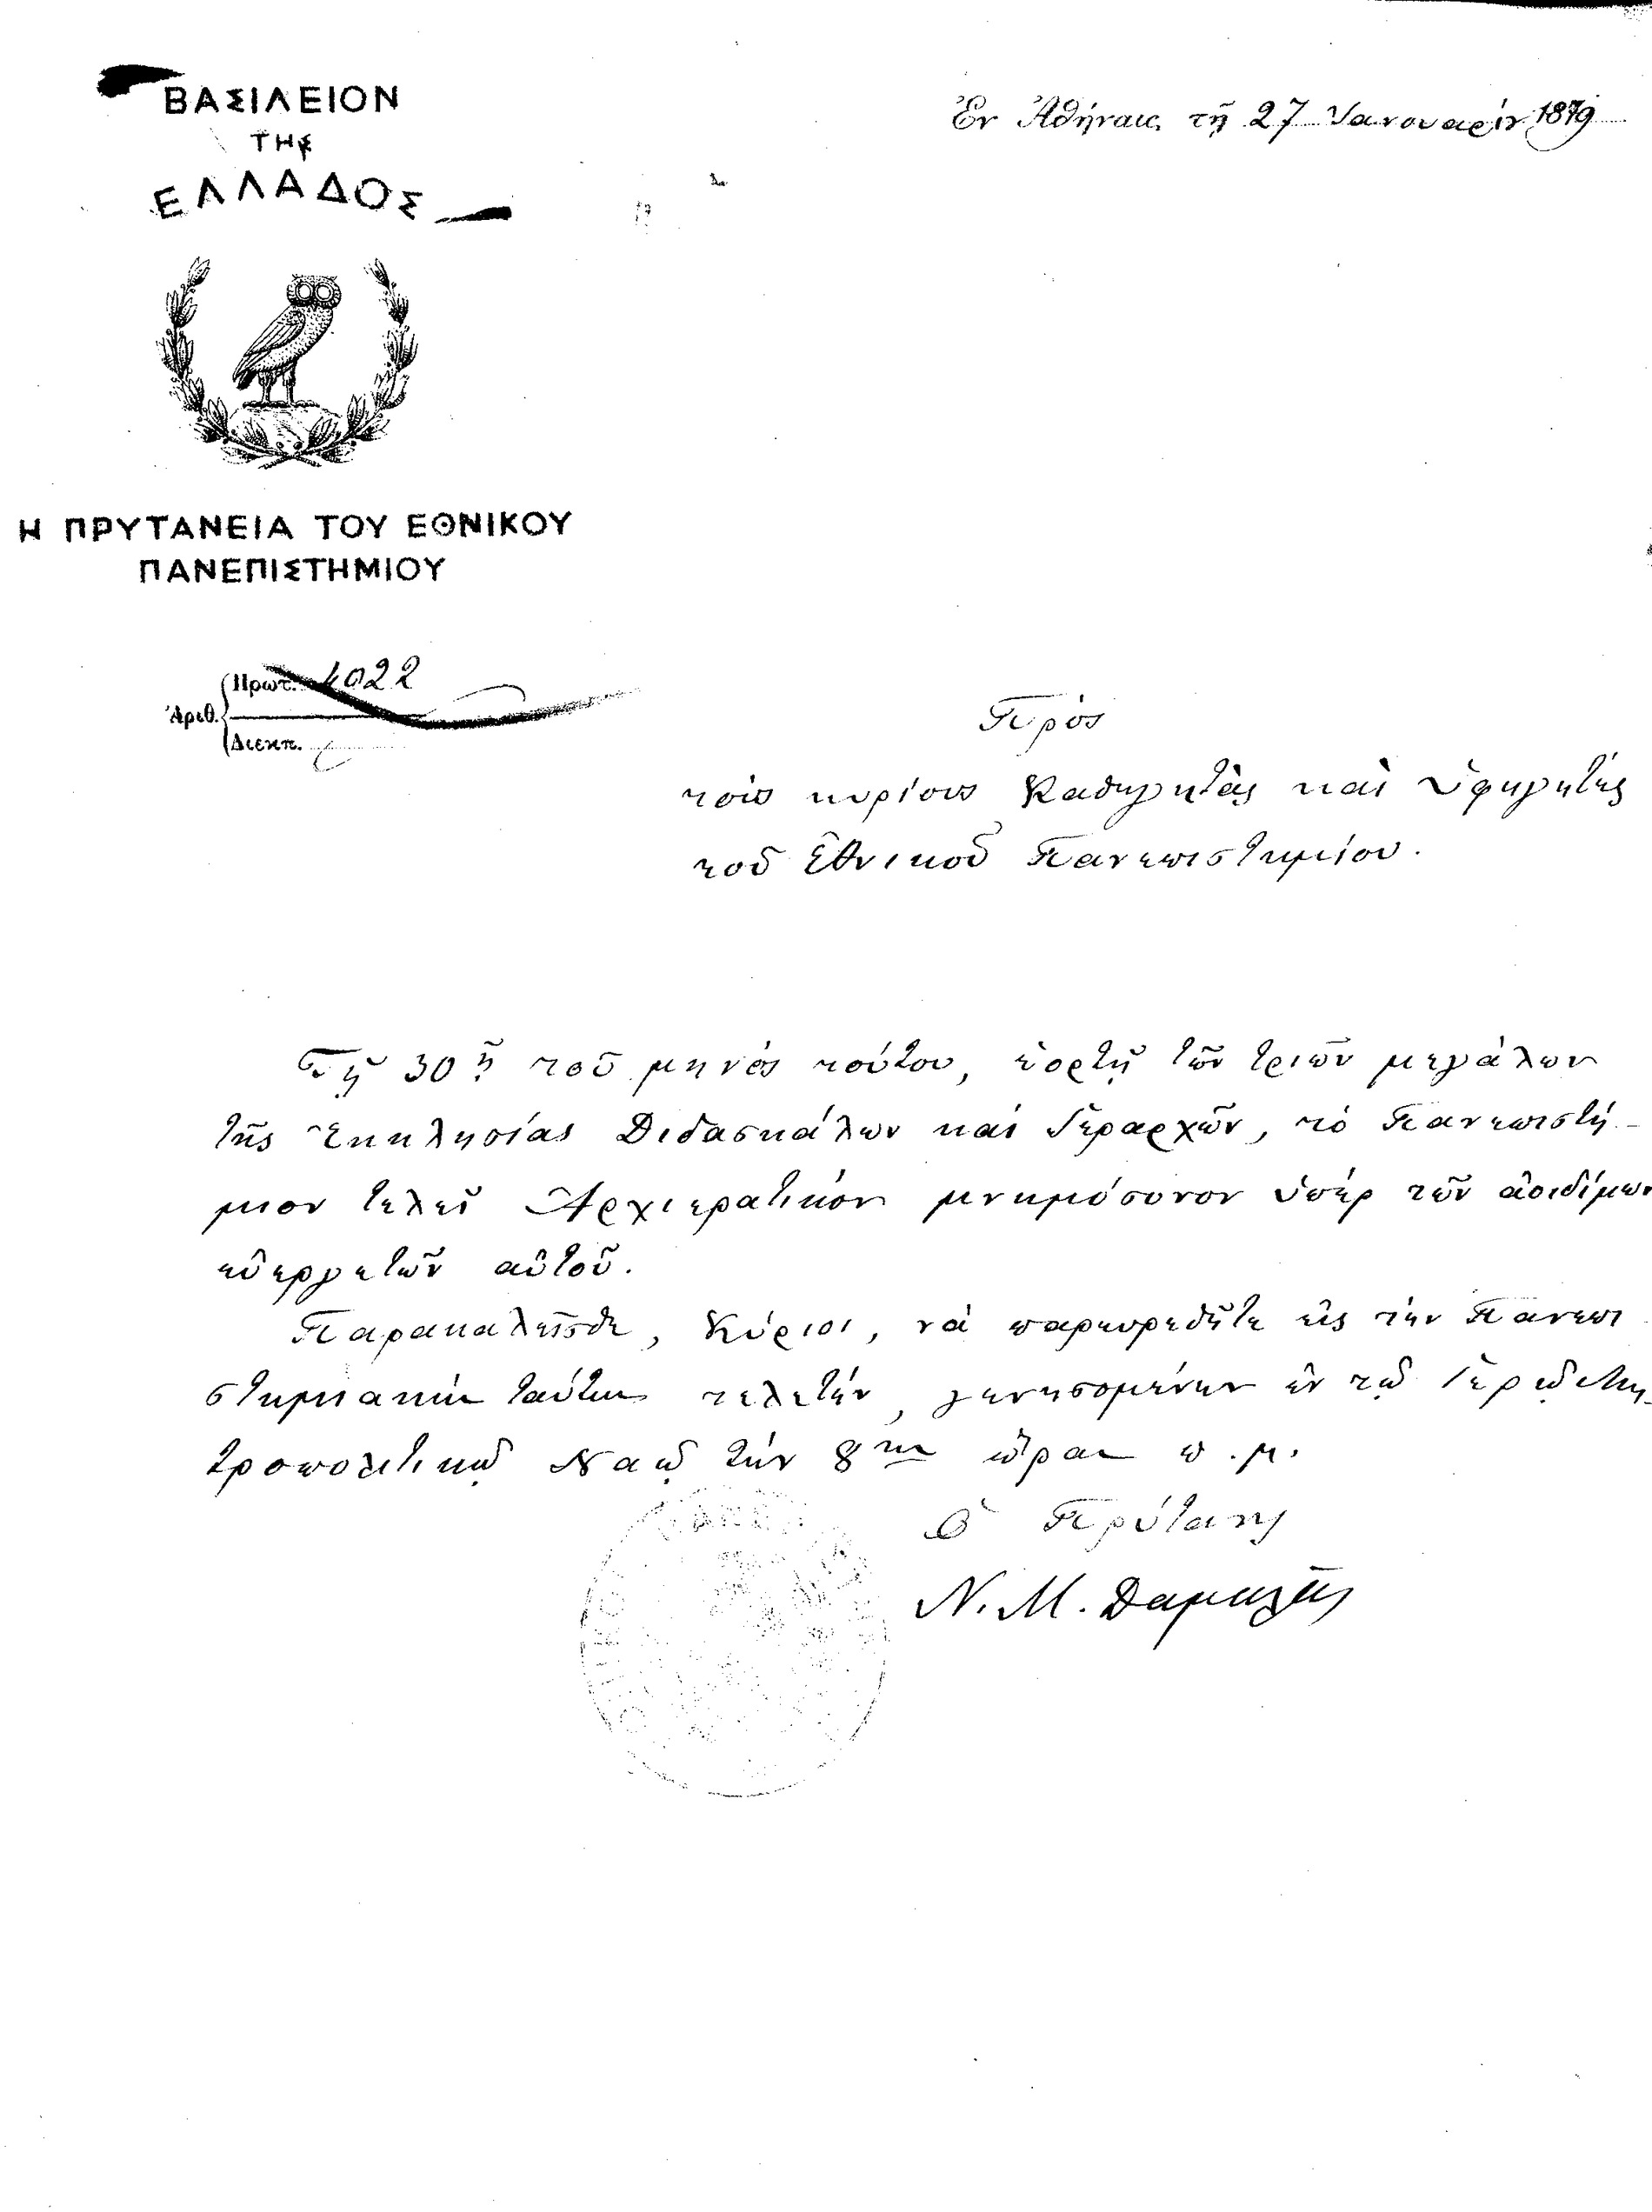 ΒΑΣΙΛΕΙΟΝ
ΤΗΣ
ΕΛΛΑΔΟΣ
Ἐν Ἀθήναις τῇ 27 Ἰανουαρίου 1879
Η ΠΡΥΤΑΝΕΙΑ ΤΟΥ ΕΘΝΙΚΟΥ
ΠΑΝΕΠΙΣΤΗΜΙΟΥ
Ἀριθ. Πρωτ. 4022
Διεκπ.
Πρὸς
τοὺς κυρίους Καθηγητὰς καὶ Ὑφηγητὰς
τοῦ Ἐθνικοῦ Πανεπιστημίου.
Τῇ 30ῇ τοῦ μηνὸς τούτου, ἑορτῇ τῶν τριῶν μεγάλων
τῆς Ἐκκλησίας Διδασκάλων καὶ Ἱεραρχῶν, τὸ Πανεπιστή-
μιον τελεῖ Ἀρχιερατικὸν μνημόσυνον ὑπὲρ τῶν ἀοιδίμων
εὐεργετῶν αὐτοῦ.
Παρακαλεῖσθε, Κύριοι, νὰ παρευρεθῆτε εἰς τὴν Πανεπι
στημιακὴν ταύτην τελετήν, γενησομένην ἐν τῷ Ἱερῷ Μη-
τροπολιτικῷ Ναῷ τὴν 8ην ὥραν π.μ.
Ὁ Πρύτανης
Ν. Μ. Δαμαλᾶς